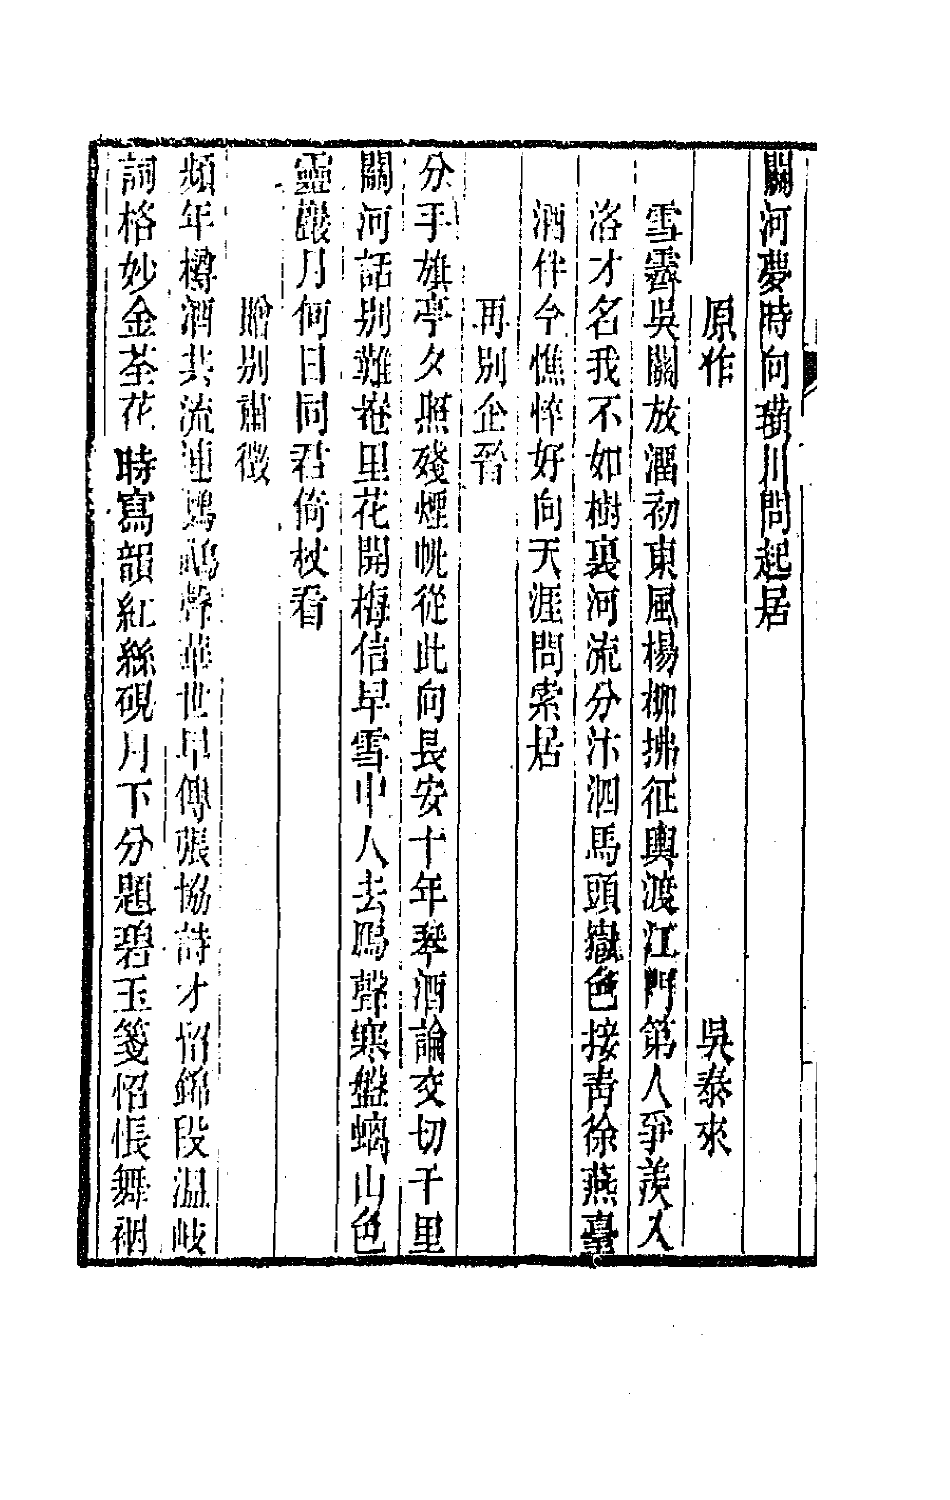 關河夢時向潢川問起居
原作　吳泰來
雪霽吳關放溜初東風楊柳拂征輿渡江門第人爭羨入
洛才名我不如樹裏河流分汴泗馬頭嶽色接青徐燕臺
酒伴今憔悴好向天涯問索居
再別企晉
分手旗亭夕照殘煙帆從此向長安十年琴酒論交切千里
關河話別難巷里花開梅信早雪中人去鴈聲寒盤螭山色
靈巖月何日同君倚杖看
贈別肅徵
頻年樽酒共流連鸚鵡聲華世早傳張協詩才留錦段溫岐
詞格妙金荃花時寫韻紅絲硯月下分題碧玉箋怊悵舞裀